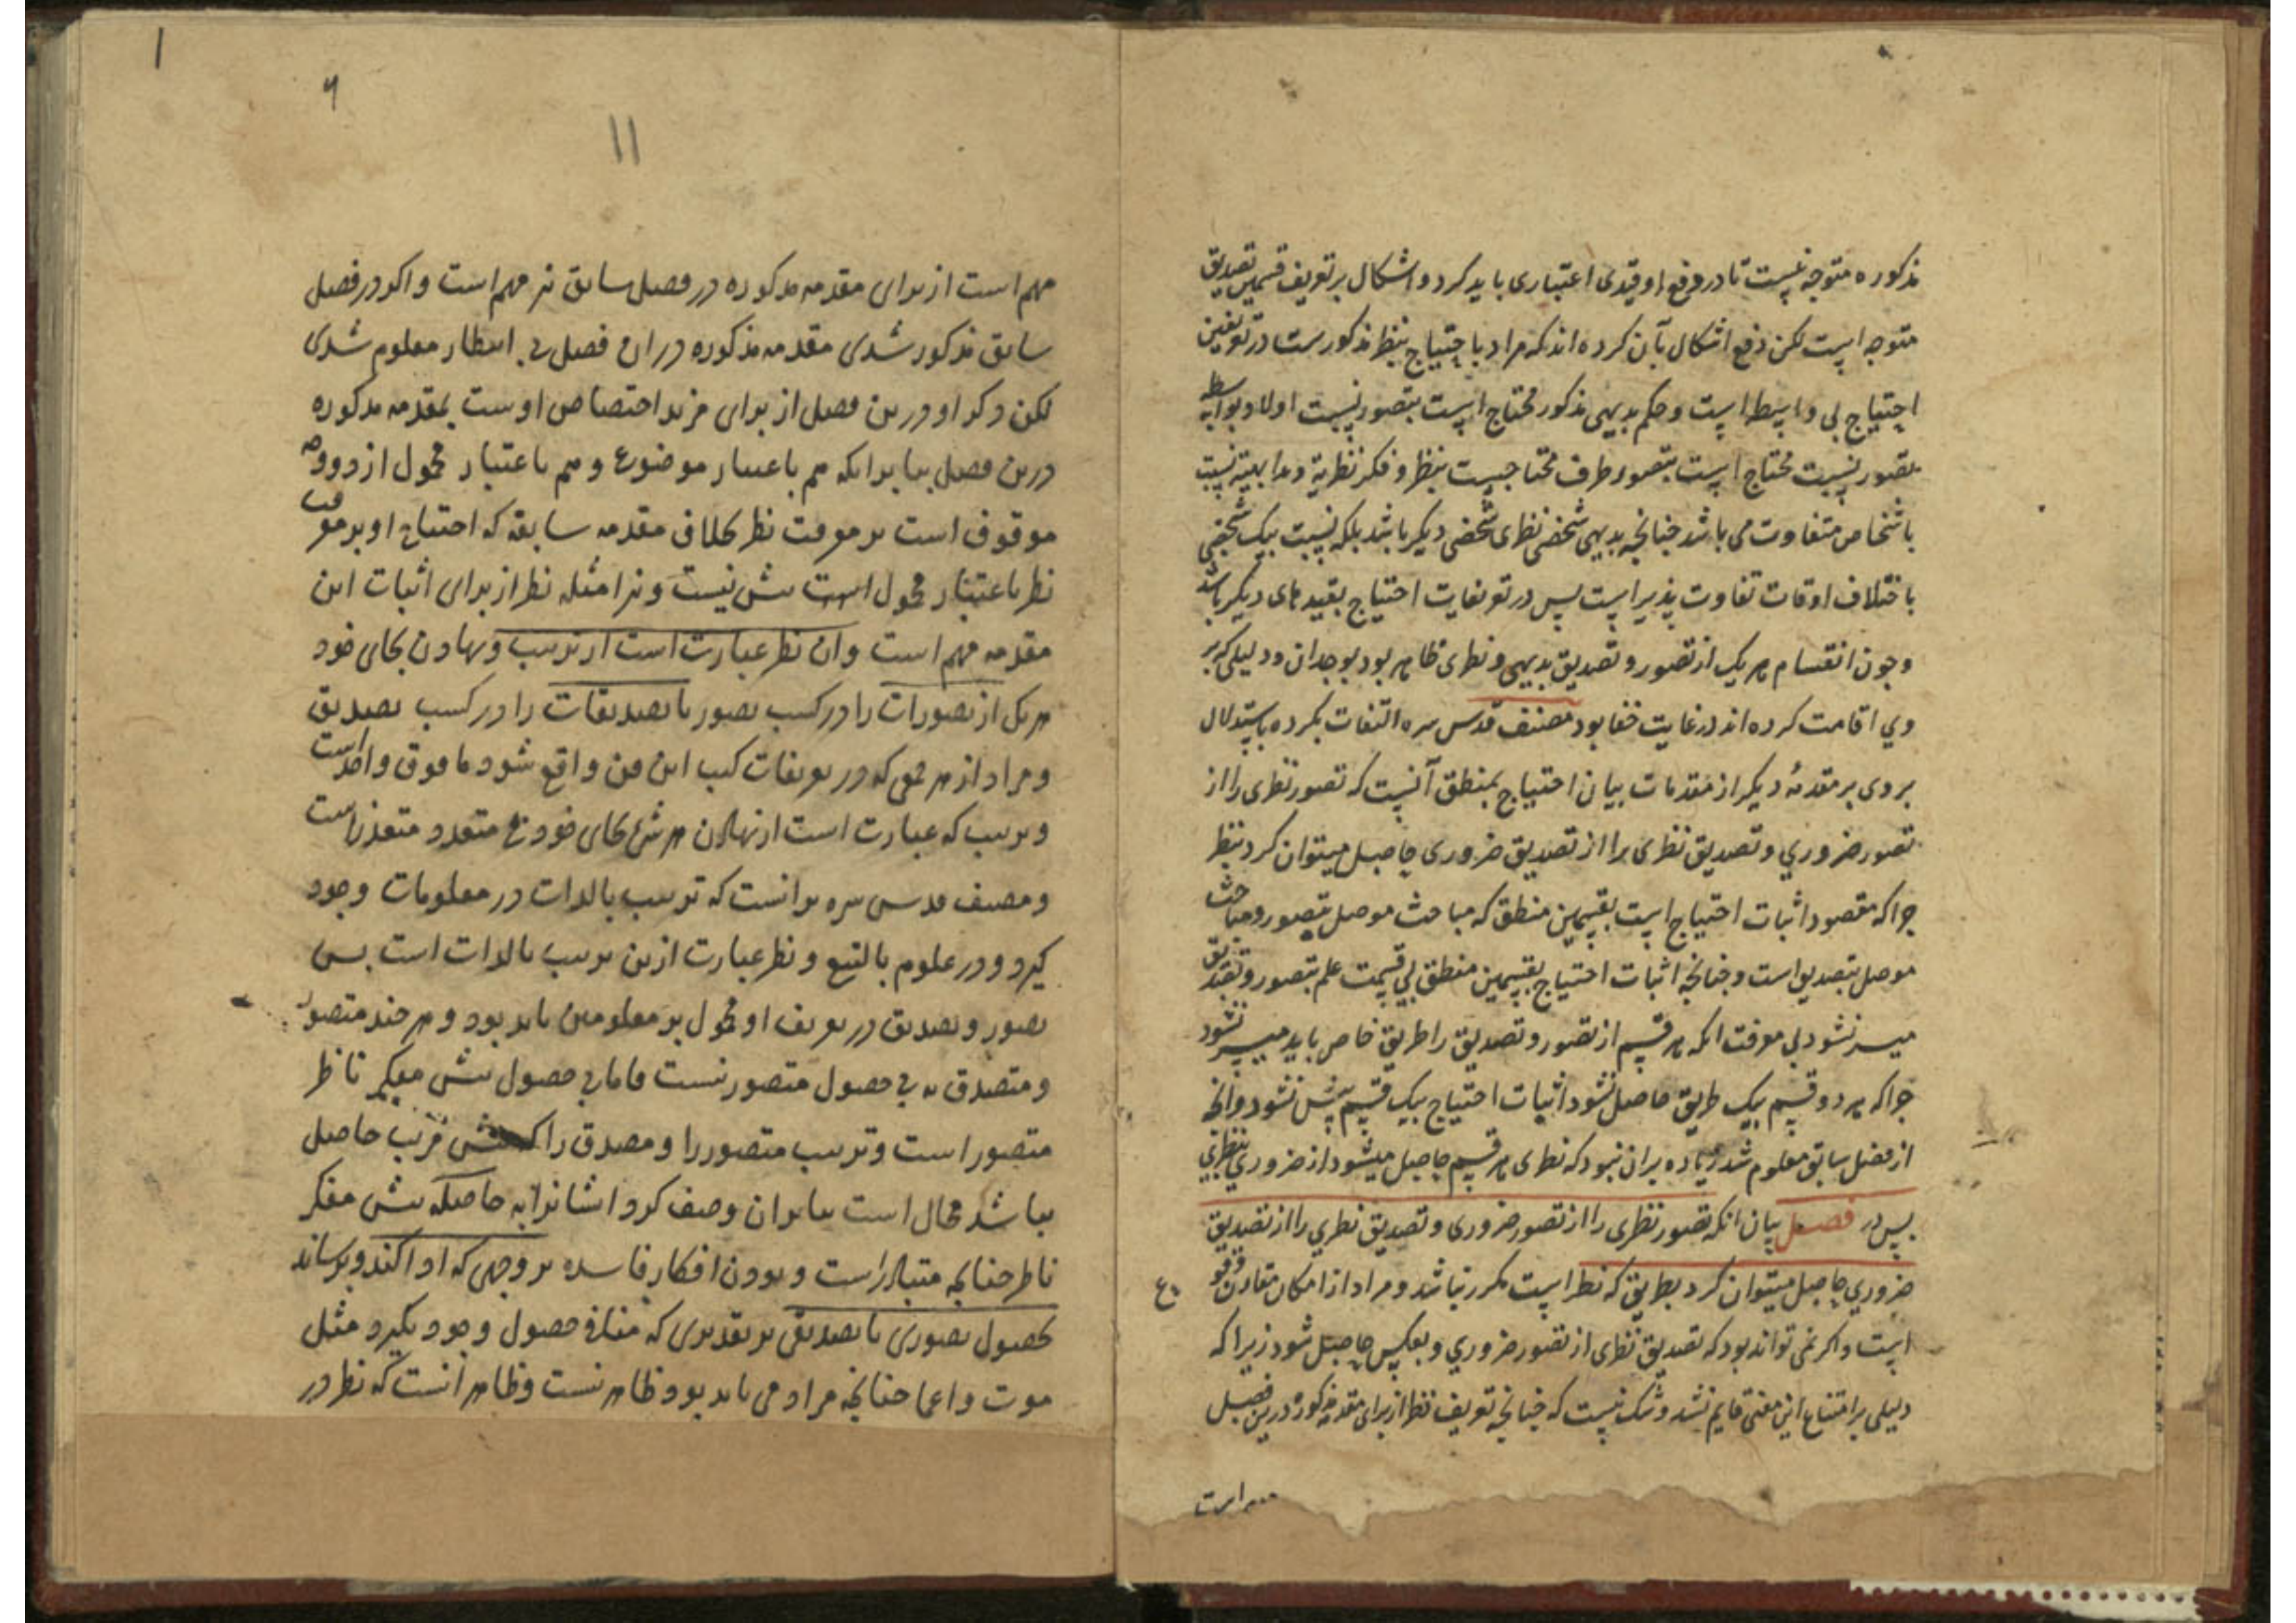 مذکوره متوجه نیست تا در دفع او قیدی اعتباری باید کرد و اشکال بر تعریف قسمین تصدیق
متوجه است لکن دفع اشکال بآن کرده اند که مراد باحتیاج بنظر مذکورست در تعریفین
احتیاج بی واسطه است و حکم بدیهی مذکور محتاج است بتصور نسبت اولا و بواسطه
تصور نسبت محتاج است بتصور طرف محتاجست بنظر و فکر نظریة و بداهیة نسبت
باشخاص متفاوت می باشد جنانجه بدیهی شخصی نظری شخصی دیکر باشد بلکه نسبت بیک شخصی
باختلاف اوقات تفاوت پذیر است پس در تعریفات احتیاج بقید های دیکر باشد
وجون انقسام هر یک از تصور و تصدیق بدیهی و نظری ظاهر بود بوجدان و دلیلی که بر
وی اقامت کرده اند در غایت خفا بود مصنف قدس سره التفات نکرده باستدلال
بر وی بر مقدمهٔ دیکر از مقدمات بیان احتیاج بمنطق آنست که تصور نظری را از
تصور ضروری و تصدیق نظری را از تصدیق ضروری حاصل میتوان کرد بنظر
جرا که مقصود اثبات احتیاج است بقسمین منطق که مباحث موصل بتصور و مباحث
موصل بتصدیق است و جنانجه اثبات احتیاج بقسمین منطق بی قسمت علم بتصور و تصدیق
میسر نشود بی معرفت انکه هر قسم از تصور و تصدیق را طریق خاص باید میسر نشود
جرا که هر دو قسم بیک طریق حاصل نشود اثبات احتیاج بیک قسم بیش نشود و انجه
از فصل سابق معلوم شد زیاده بران نبود که نظری هر قسم حاصل میشود از ضروری بنظر
پس در فصل بیان انکه تصور نظری را از تصور ضروری و تصدیق نظری را از تصدیق
ضروری حاصل میتوان کرد بطریق که نظر است مکرر نباشد و مراد از امکان مقارن وقوع
است و اکر نمی تواند بود که تصدیق نظری از تصور ضروری و بعکس حاصل شود زیرا که
دلیلی بر امتناع این معنی قایم نشد و شک نیست که جنانجه تعریف نظر از برای مقدمه مذکوره درین فصل
مهم است
۱
۶
۱۱
مهم است از برای مقدمه مذکوره در فصل سابق نیز مهم است و اکر در فصل
سابق مذکور شدی مقدمه مذکوره در ان فصل بی انتظار معلوم شدی
لکن ذکر او درین فصل از برای مزید اختصاص اوست بمقدمه مذکوره
درین فصل بنا برانکه هم باعتبار موضوع و هم باعتبار محمول از دو وجه
موقوف است بر معرفت نظر بخلاف مقدمه سابقه که احتیاج او بر معرفت
نظر باعتبار محمول است بیش نیست و نیز امثله نظر از برای اثبات این
مقدمه مهم است وان نظر عبارت است از ترتیب و نهادن بجای خود
هر یک از تصورات را در کسب تصور یا تصدیقات را در کسب تصدیق
و مراد از هر جمعی که در تعریفات کتب این فن واقع شود ما فوق واحد است
و ترتیب که عبارت است از نهادن هر شئ بجای خود بی متعدد متعذر است
و مصنف قدس سره برانست که ترتیب بالذات در معلومات وجود
کیرد و در علوم بالتبع و نظر عبارت ازین ترتیب بالذات است پس
تصور و تصدیق در تعریف او محمول بر معلومین باید بود و هر جند متصور
و متصدق به بی حصول متصور نیست فاما بی حصول بیش مفکر ناظر
متصور است و ترتیب متصور را و مصدق را که بیش مرتب حاصل
نباشد محال است بنا بران وصف کرد ایشانرا به حاصله بیش مفکر
ناظر جنانجه متبادر است و بودن افکار فاسده بر وجهی که ادا کند و برساند
بحصول تصوری یا تصدیقی بر تقدیری که منافی حصول وجود نکیرد مثل
موت و اغما جنانجه مراد می باید بود ظاهر نیست و ظاهر انست که نظر در